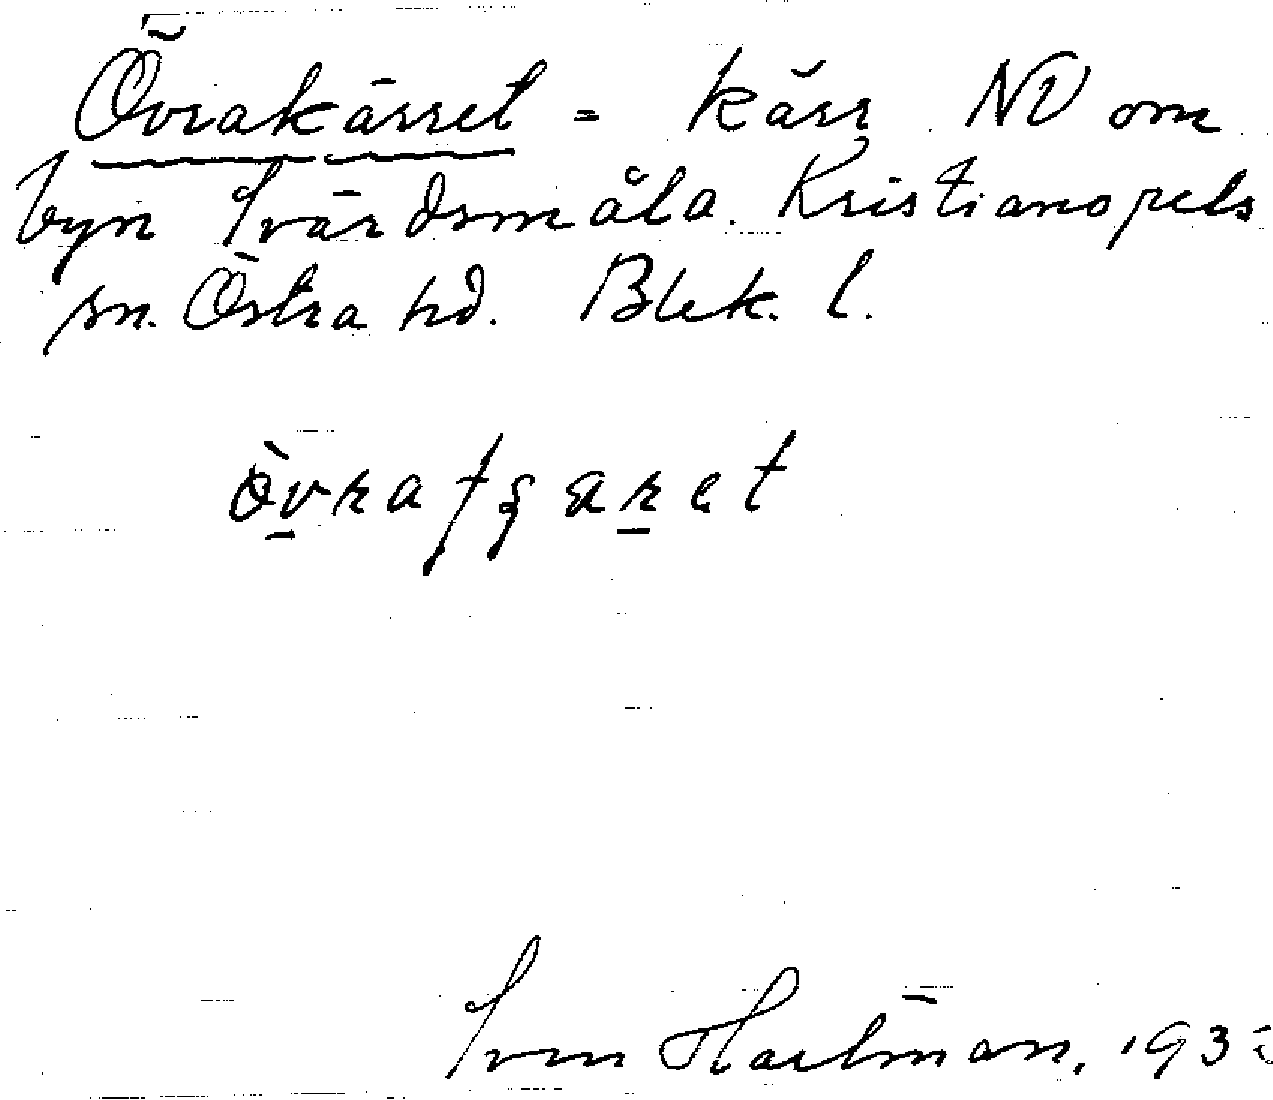 Övrakärret = kärr NV om
byn Svärdsmåla. Kristianopels
sn. Östra hd. Blek. l.
Sven Hartman, 193